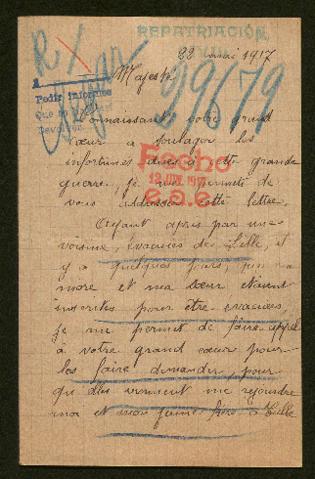 REPATRIACIÓN
22 mai 1917
R/
99679
Majesté
A
Pedir informes
Connaissant votre grand
cœur a soulager les
infortunes dues a cette grande
guerre, je me permets de
vous addresser cette lettre.
Fecho
12 JUN. 1917
e.a.e.
Ayant apris par une
voisine, évacuées de Lille, il
y a quelques jours, que ma
mère et ma sœur étaient
inscrites pour être évacuées,
je me permet de faire appel
à votre grand cœur pour
les faire demander, pour
qu'elles viennent me rejoindre
moi et mon jeune frère à